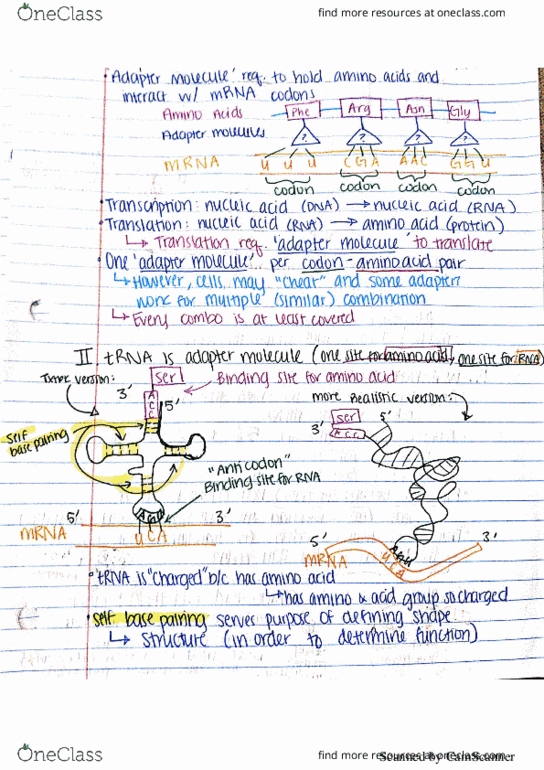 OneClass
find more resources at oneclass.com
• 'Adapter molecule' req. to hold amino acids and
interact w/ mRNA codons
Amino Acids Phe Arg Asn Gly
Adapter molecules ? ? ? ?
mRNA U U U C G A A A C G G U
codon codon codon codon
• Transcription: nucleic acid (DNA) → nucleic acid (RNA)
• Translation: nucleic acid (RNA) → amino acid (protein)
↳ Translation req. 'adapter molecule' to translate
• One 'adapter molecule' per codon-amino acid pair
↳ However, cells may "cheat" and some adapters
work for multiple (similar) combination
↳ Every combo is at least covered
II tRNA is adapter molecule (one site for amino acid, one site for RNA)
version:
ser
Binding site for amino acid
3' A C C 5'
more Realistic version:
ser
3' A C C 5'
self
base pairing
"Anticodon"
Binding site for RNA
5' 3'
mRNA UCA
5' 3'
mRNA UCA
• tRNA is "charged" b/c has amino acid
↳ has amino & acid group so charged
• self base pairing serves purpose of defining shape
↳ structure (in order to determine function)
OneClass
find more resources at oneclass.com
Scanned by CamScanner